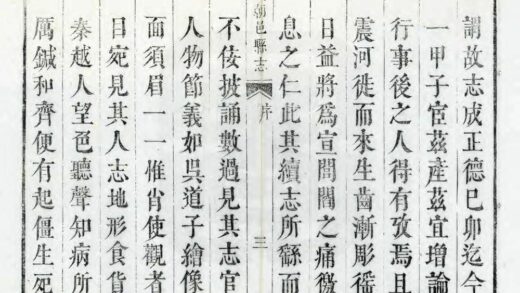 謂故志成正德巳卯迄今
一甲子宦茲產茲宜增論
行事後之人得有攷焉且
震河徙而來生齒漸彫徭
日益將爲宣閭閻之痛徼
息之仁此其續志所繇而
朝邑縣志 序 三
不佞披誦數過見其志官
人物節義如吳道子繪像
面須眉一一惟肖使觀者
日宛見其人志地形食貨
秦越人望色聽聲知病所
厲鍼和齊便有起僵生死